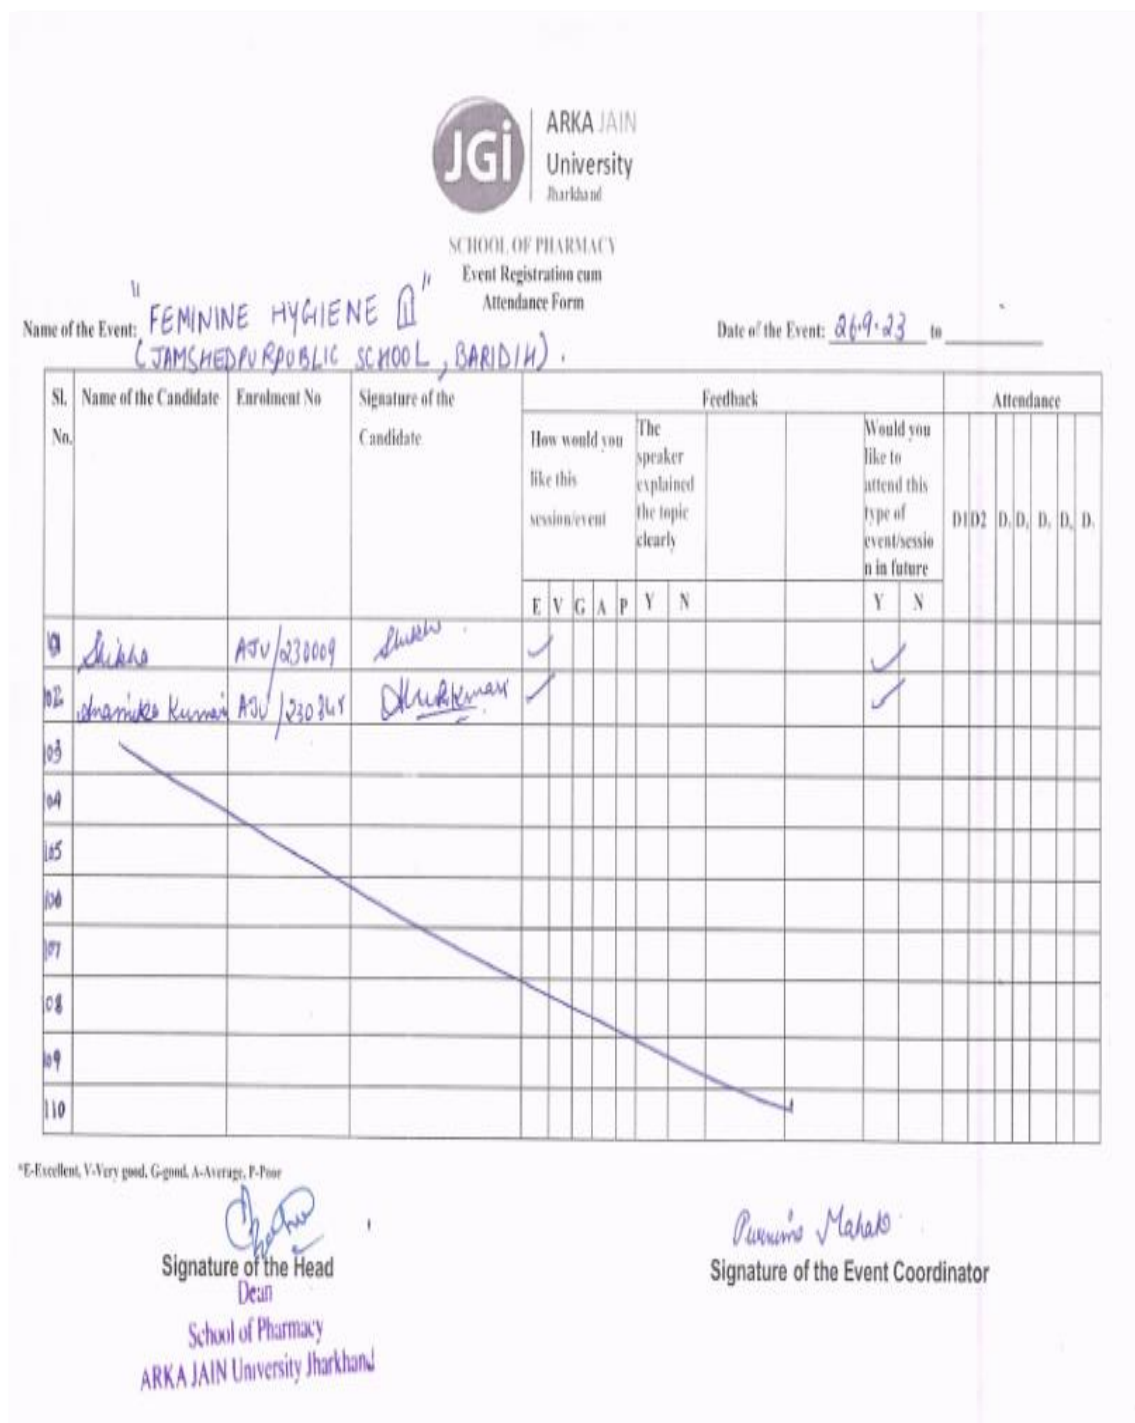 JGi
ARKA JAIN
University
Jharkhand
SCHOOL OF PHARMACY
Event Registration cum
Attendance Form
Name of the Event: "FEMININE HYGIENE II"
(JAMSHEDPUR PUBLIC SCHOOL, BARIDIH).
Date of the Event: 26.9.23 to
Sl. No. Name of the Candidate Enrolment No Signature of the Candidate Feedback Attendance
How would you like this session/event The speaker explained the topic clearly Would you like to attend this type of event/session in future D1 D2 D. D. D. D. D.
E V G A P Y N Y N
Shikha AJU/230009 Shikha
102 Anamika Kumari AJU/
103
104
105
106
107
108
109
110
*E-Excellent, V-Very good, G-good, A-Average, P-Poor
Signature of the Head
Dean
School of Pharmacy
ARKA JAIN University Jharkhand
Purnima Mahato
Signature of the Event Coordinator